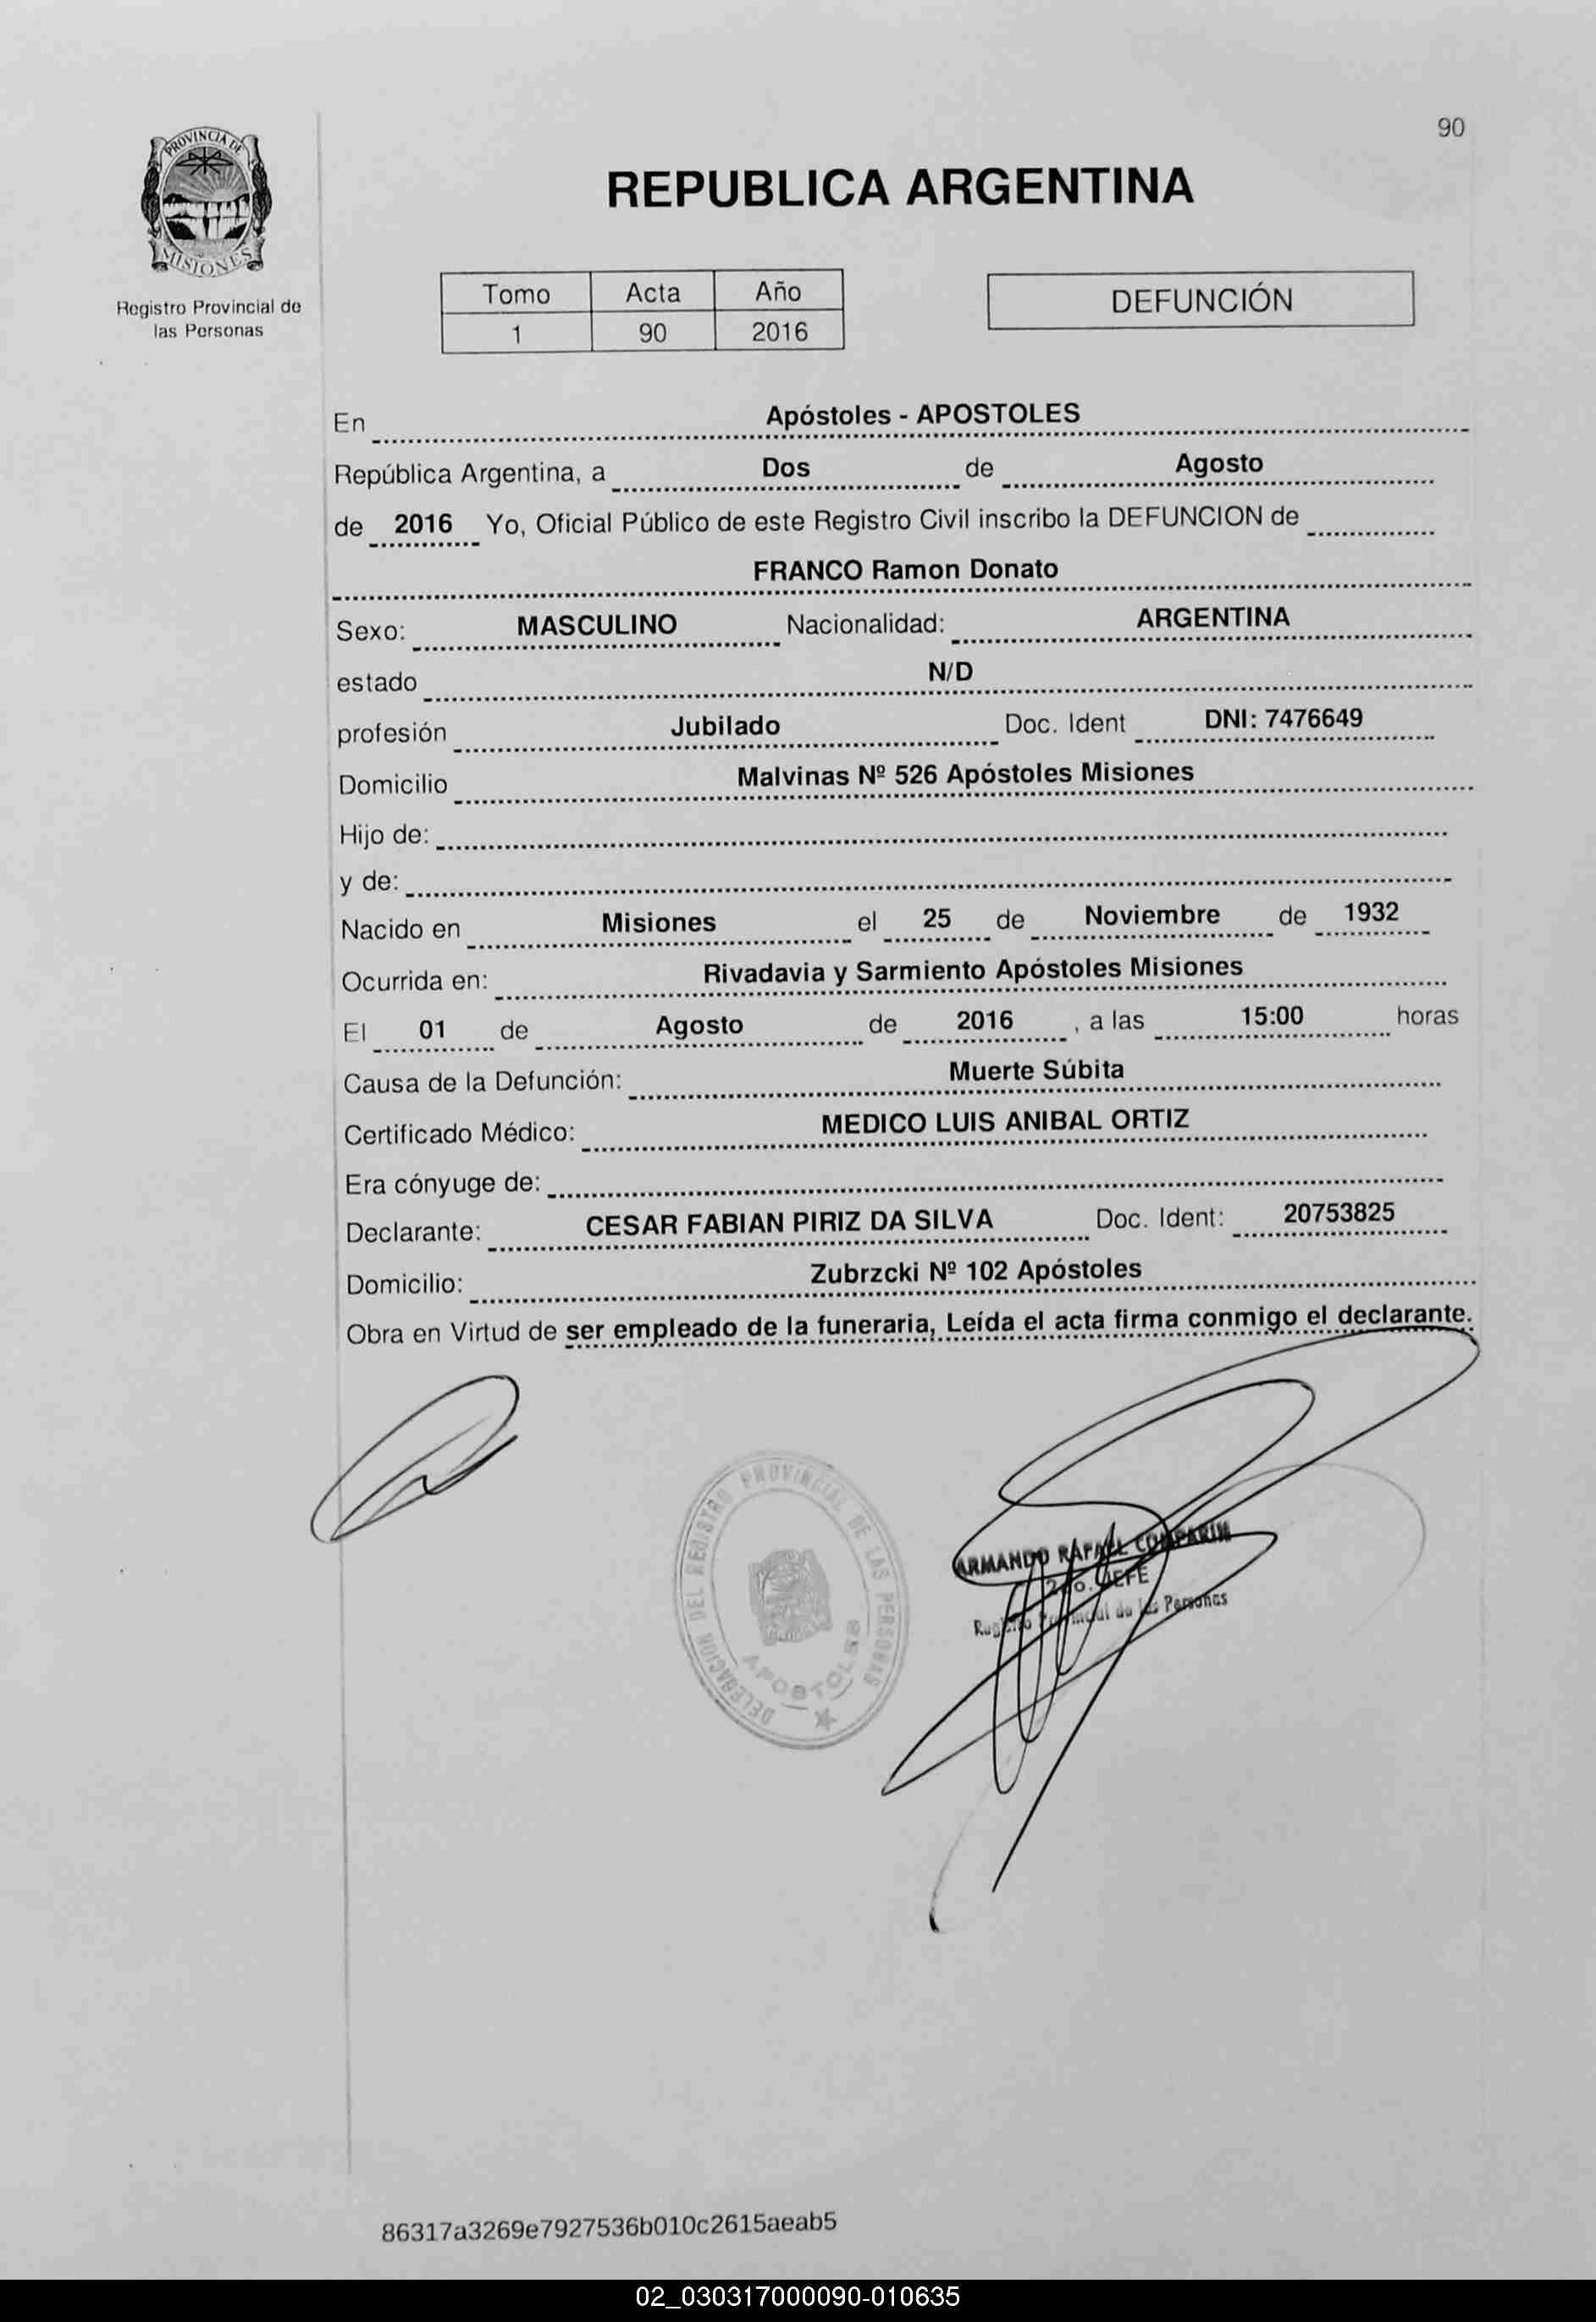 90
PROVINCIA DE
MISIONES
Registro Provincial de
las Personas
REPUBLICA ARGENTINA
Tomo Acta Año
1 90 2016
DEFUNCIÓN
En Apóstoles - APOSTOLES
República Argentina, a Dos de Agosto
de 2016 Yo, Oficial Público de este Registro Civil inscribo la DEFUNCION de
FRANCO Ramon Donato
Sexo: MASCULINO Nacionalidad: ARGENTINA
estado N/D
profesión Jubilado Doc. Ident DNI: 7476649
Domicilio Malvinas Nº 526 Apóstoles Misiones
Hijo de:
y de:
Nacido en Misiones el 25 de Noviembre de 1932
Ocurrida en: Rivadavia y Sarmiento Apóstoles Misiones
El 01 de Agosto de 2016 , a las 15:00 horas
Causa de la Defunción: Muerte Súbita
Certificado Médico: MEDICO LUIS ANIBAL ORTIZ
Era cónyuge de:
Declarante: CESAR FABIAN PIRIZ DA SILVA Doc. Ident: 20753825
Domicilio: Zubrzcki Nº 102 Apóstoles
Obra en Virtud de ser empleado de la funeraria, Leída el acta firma conmigo el declarante.
DELEGACION DEL REGISTRO PROVINCIAL DE LAS PERSONAS
APOSTOLES
ARMANDO RAFAEL COMPARIN
2do. JEFE
Registro Provincial de las Personas
86317a3269e7927536b010c2615aeab5
02_030317000090-010635